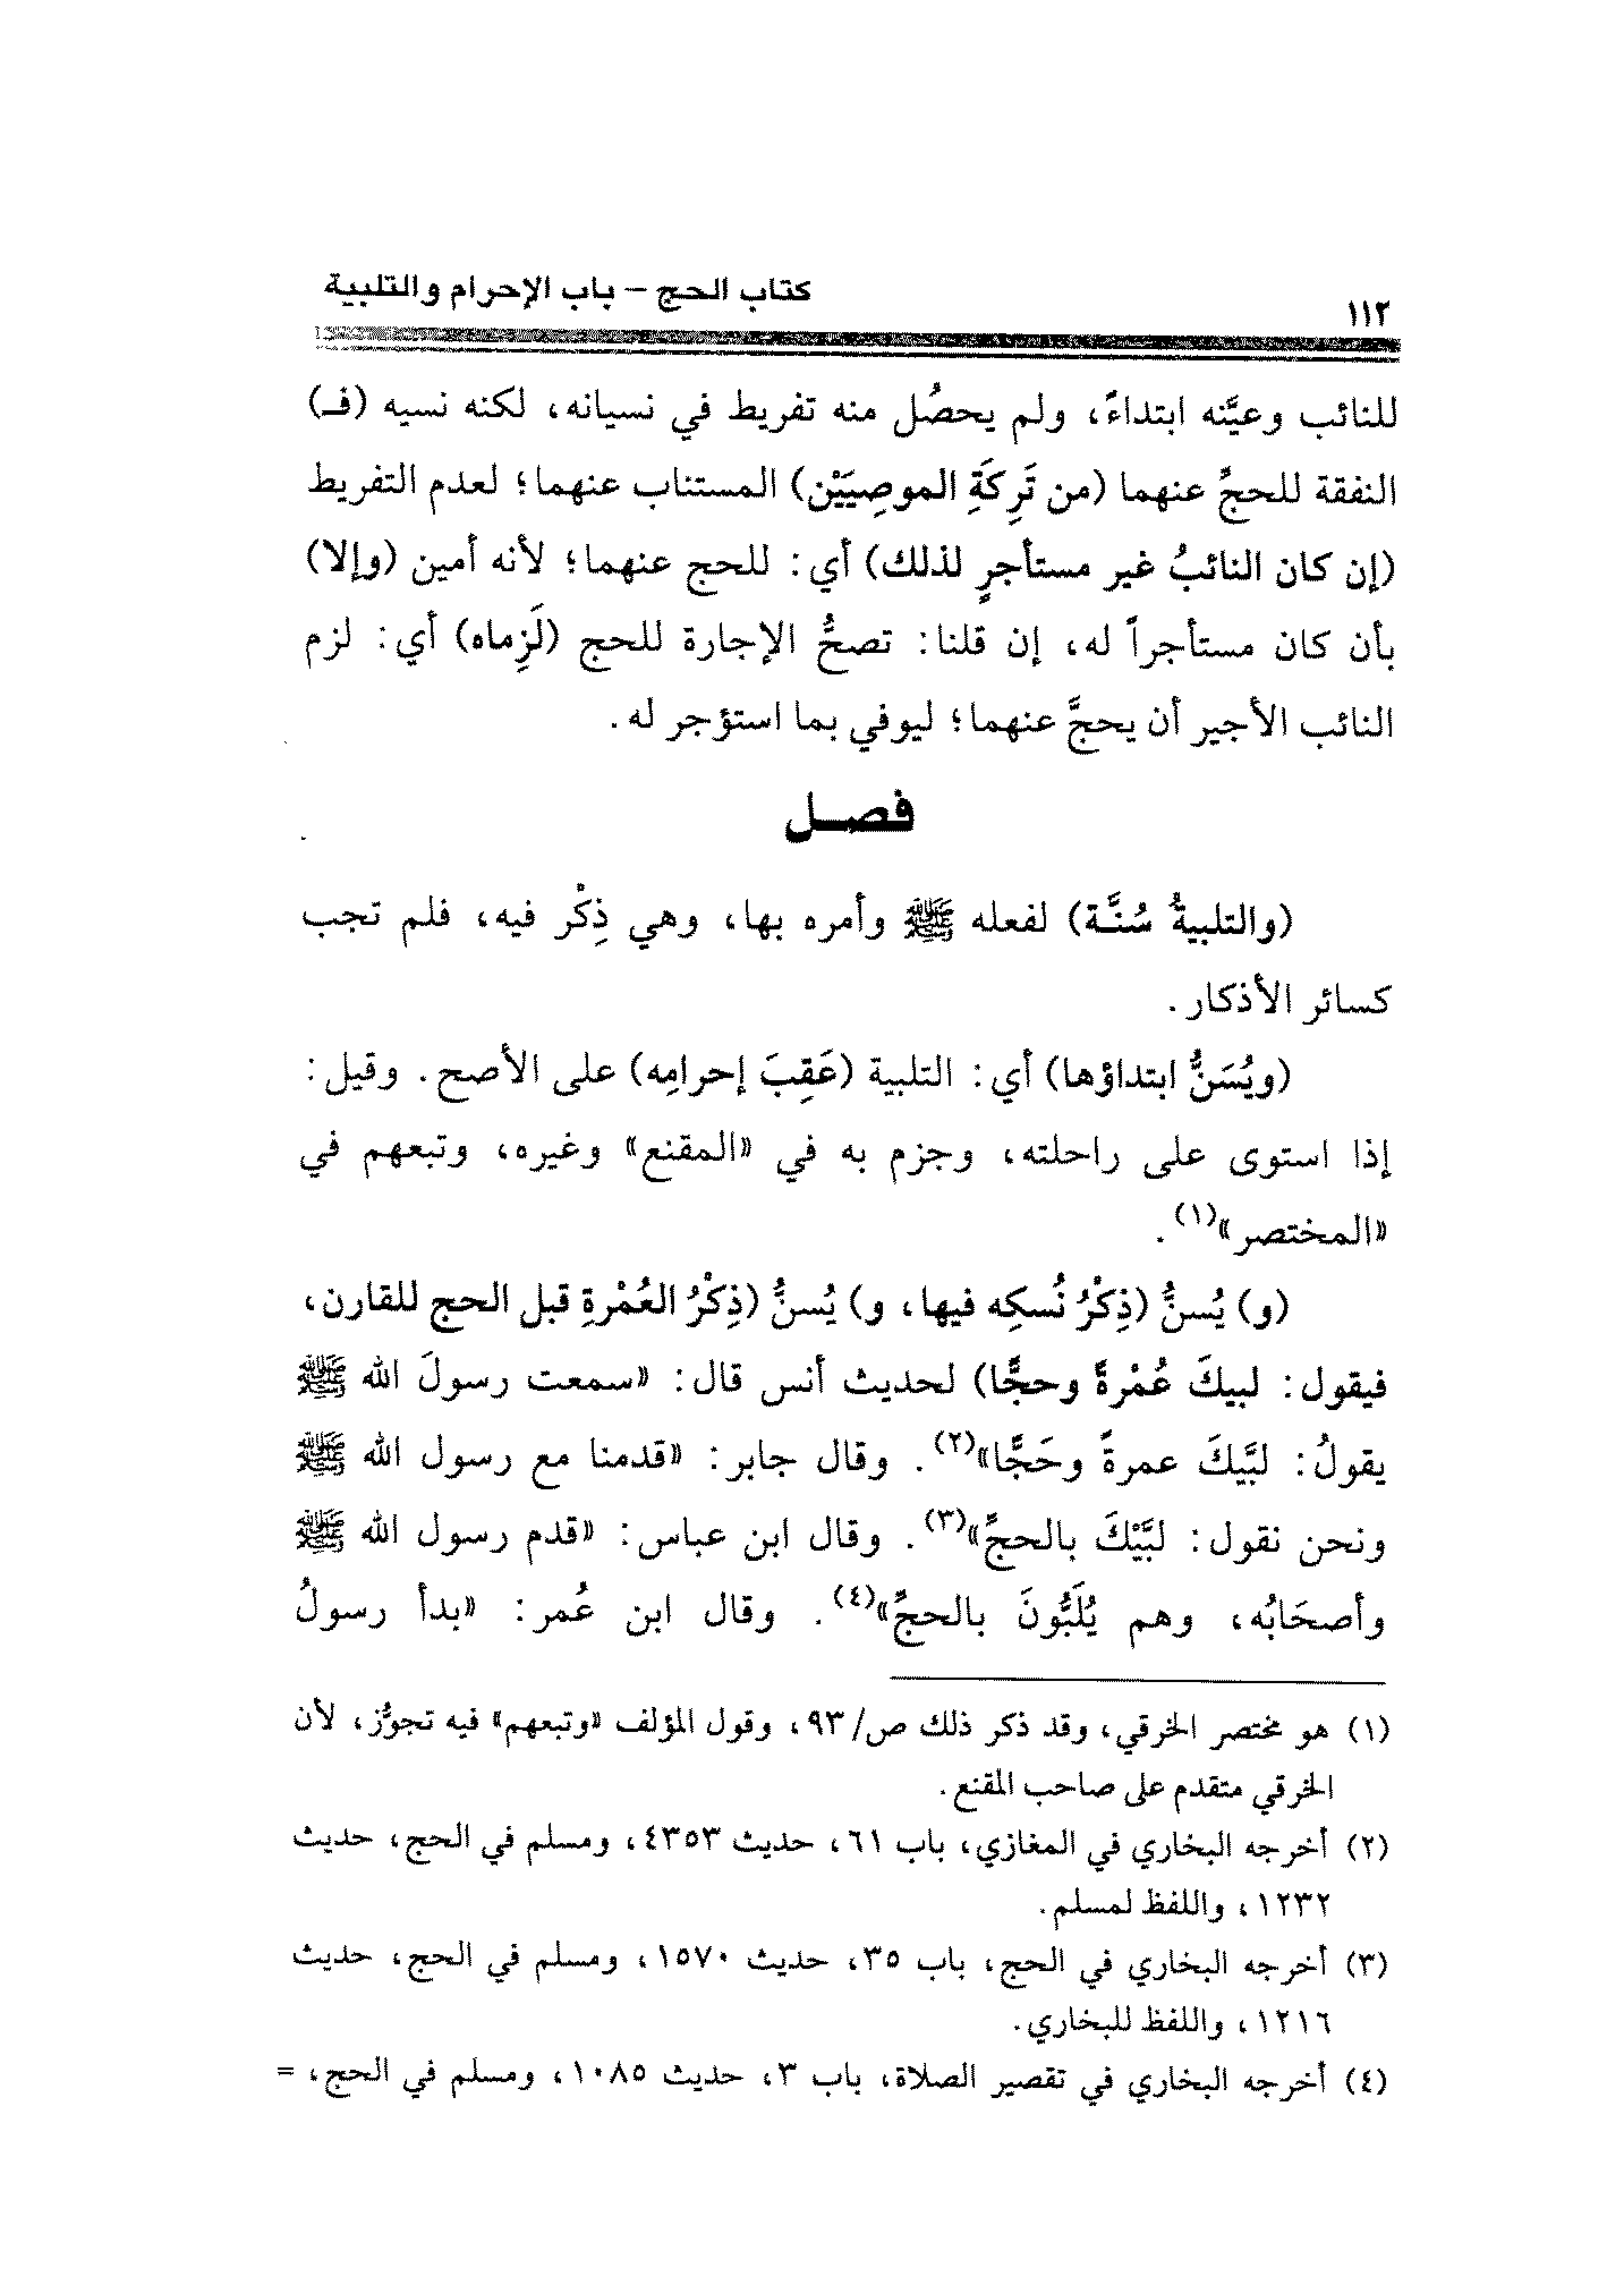 ١١٢
كتاب الحج – باب الإحرام والتلبية
للنائب وعيَّنه ابتداءً، ولم يحصُل منه تفريط في نسيانه، لكنه نسيه (فـ)
النفقة للحجِّ عنهما (من تَرِكَةِ الموصِيَيْن) المستناب عنهما؛ لعدم التفريط
(إن كان النائبُ غير مستأجرٍ لذلك) أي: للحج عنهما؛ لأنه أمين (وإلا)
بأن كان مستأجراً له، إن قلنا: تصحُّ الإجارة للحج (لَزِماه) أي: لزم
النائب الأجير أن يحجَّ عنهما؛ ليوفي بما استؤجر له.
فصـــل
(والتلبيةُ سُنَّـة) لفعله ﷺ وأمره بها، وهي ذِكْر فيه، فلم تجب
كسائر الأذكار.
(ويُسَنُّ ابتداؤها) أي: التلبية (عَقِبَ إحرامِه) على الأصح. وقيل:
إذا استوى على راحلته، وجزم به في «المقنع» وغيره، وتبعهم في
«المختصر»(١).
(و) يُسنُّ (ذِكْرُ نُسكِه فيها، و) يُسنُّ (ذِكْرُ العُمْرةِ قبل الحج للقارن،
فيقول: لبيكَ عُمْرةً وحجًّا) لحديث أنس قال: «سمعت رسولَ الله ﷺ
يقولُ: لبَّيكَ عمرةً وحَجًّا»(٢). وقال جابر: «قدمنا مع رسول الله ﷺ
ونحن نقول: لبَّيْكَ بالحجِّ»(٣). وقال ابن عباس: «قدم رسول الله ﷺ
وأصحَابُه، وهم يُلَبُّونَ بالحجِّ»(٤). وقال ابن عُمر: «بدأ رسولُ
(١) هو مختصر الخرقي، وقد ذكر ذلك ص/٩٣، وقول المؤلف «وتبعهم» فيه تجوُّز، لأن
الخرقي متقدم على صاحب المقنع.
(٢) أخرجه البخاري في المغازي، باب ٦١، حديث ٤٣٥٣، ومسلم في الحج، حديث
١٢٣٢، واللفظ لمسلم.
(٣) أخرجه البخاري في الحج، باب ٣٥، حديث ١٥٧٠، ومسلم في الحج، حديث
١٢١٦، واللفظ للبخاري.
(٤) أخرجه البخاري في تقصير الصلاة، باب ٣، حديث ١٠٨٥، ومسلم في الحج، =